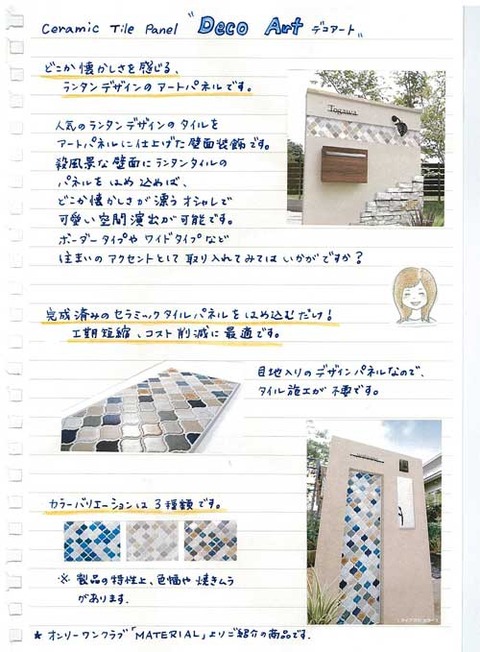 Ceramic Tile Panel "Deco Art デコアート"
どこか懐かしさを感じる、
ランタンデザインのアートパネルです。
人気のランタンデザインのタイルを
アートパネルに仕上げた壁面装飾です。
殺風景な壁面にランタンタイルの
パネルをはめ込めば、
どこか懐かしさが漂うオシャレで
可愛い空間演出が可能です。
ボーダータイプやワイドタイプなど
住まいのアクセントとして取り入れてみてはいかがですか?
Togawa
完成済みのセラミックタイルパネルをはめ込むだけ!
工期短縮、コスト削減に最適です。
目地入りのデザインパネルなので、
タイル施工が不要です。
カラーバリエーションは3種類です。
※ 製品の特性上、色幅や焼きムラ
があります。
★ オンリーワンクラブ「MATERIAL」よりご紹介の商品です.